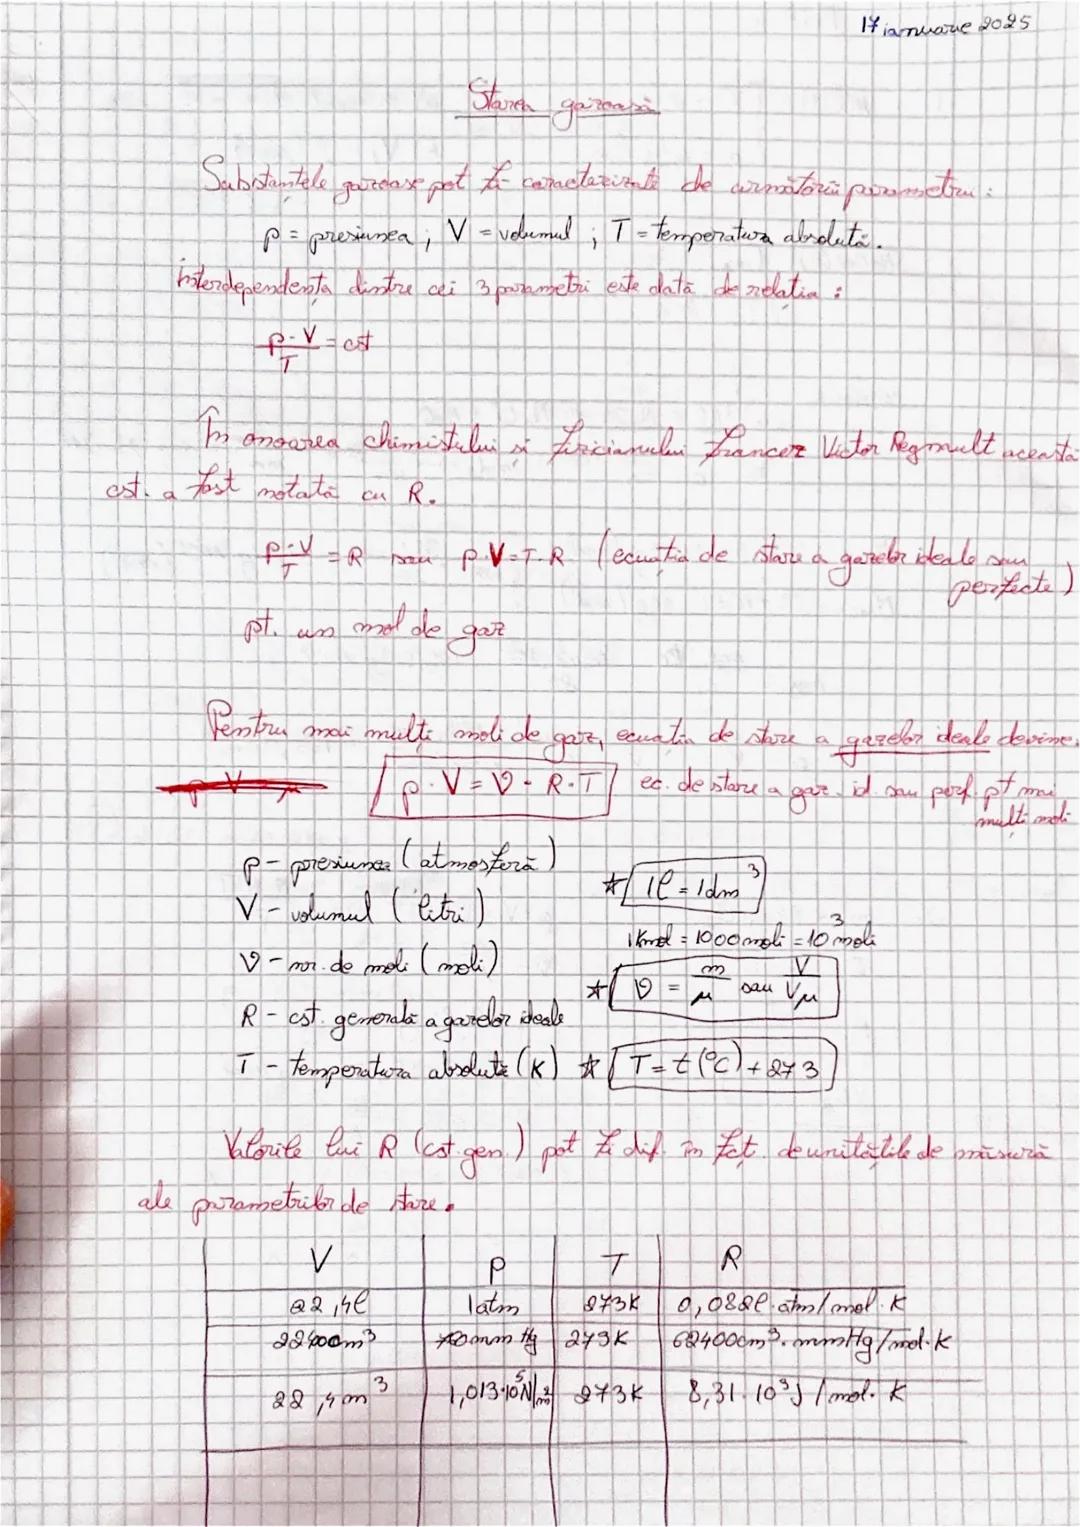 17 ianuarie 2025
Starea gazoasă
Substanțele gazoase pot fi caracterizate de următorii parametrii :
p = presiunea ; V = volumul ; T = temperatura absolută.
Interdependența dintre cei 3 parametri este dată de relația :
p·V/T = cst
În onoarea chimistului și fizicianului francez Victor Regnault această
cst. a fost notată cu R.
p·V/T = R sau p·V=T·R (ecuația de stare a gazelor ideale sau
perfecte)
pt. un mol de gaz
Pentru mai mulți moli de gaz, ecuația de stare a gazelor ideale devine:
p·V = ν·R·T ec. de stare a gaz. id. sau perf. pt mai
mulți moli
p - presiunea (atmosferă)
☆ 1l = 1dm³
V - volumul (litri)
1 Kmol = 1000 moli = 10³ moli
ν - nr. de moli (moli)
☆ ν = m/μ sau V/Vμ
R - cst. generală a gazelor ideale
T - temperatura absolută (K) ☆ T = t(°C) + 273
Valorile lui R (cst. gen.) pot fi dif. în fct. de unitățile de măsură
ale parametrilor de stare.
V p T R
22,4l 1atm 273K 0,082l·atm/mol·K
22400cm³ mm Hg 273K 62400cm³·mmHg/mol·K
22,4m³ 1,013·10⁵N/m² 273K 8,31·10³J/mol·K